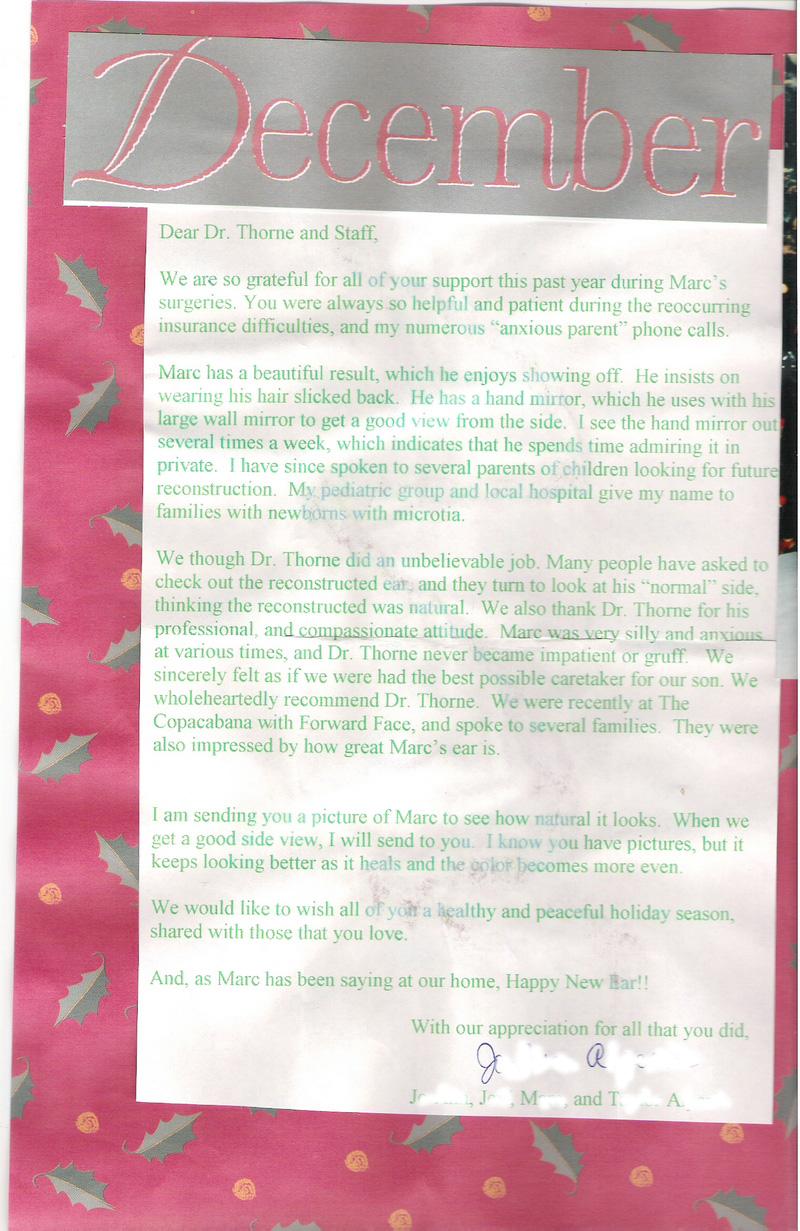 December
Dear Dr. Thorne and Staff,
We are so grateful for all of your support this past year during Marc's
surgeries. You were always so helpful and patient during the reoccurring
insurance difficulties, and my numerous "anxious parent" phone calls.
Marc has a beautiful result, which he enjoys showing off. He insists on
wearing his hair slicked back. He has a hand mirror, which he uses with his
large wall mirror to get a good view from the side. I see the hand mirror out
several times a week, which indicates that he spends time admiring it in
private. I have since spoken to several parents of children looking for future
reconstruction. My pediatric group and local hospital give my name to
families with newborns with microtia.
We though Dr. Thorne did an unbelievable job. Many people have asked to
check out the reconstructed ear, and they turn to look at his "normal" side,
thinking the reconstructed was natural. We also thank Dr. Thorne for his
professional, and compassionate attitude. Marc was very silly and anxious
at various times, and Dr. Thorne never became impatient or gruff. We
sincerely felt as if we were had the best possible caretaker for our son. We
wholeheartedly recommend Dr. Thorne. We were recently at The
Copacabana with Forward Face, and spoke to several families. They were
also impressed by how great Marc's ear is.
I am sending you a picture of Marc to see how natural it looks. When we
get a good side view, I will send to you. I know you have pictures, but it
keeps looking better as it heals and the color becomes more even.
We would like to wish all of you a healthy and peaceful holiday season,
shared with those that you love.
And, as Marc has been saying at our home, Happy New Ear!!
With our appreciation for all that you did,
and